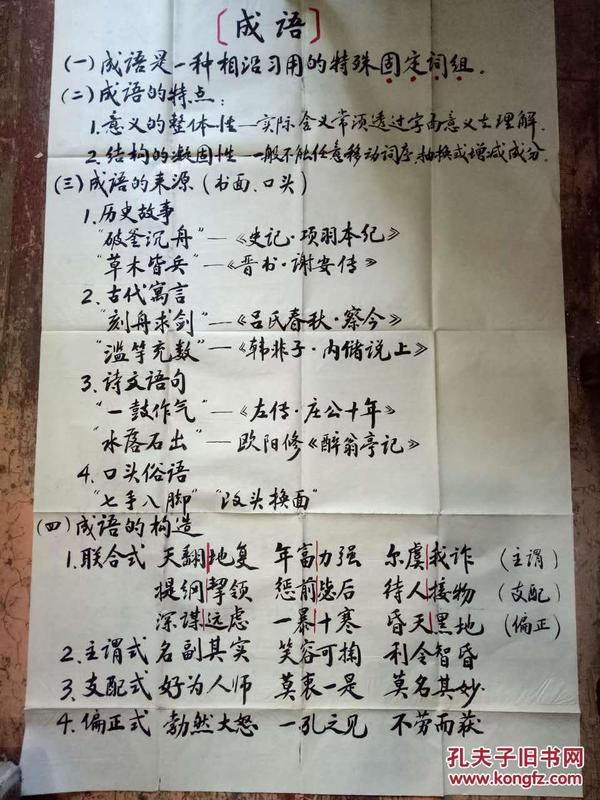 〔成语〕
(一)成语是一种相沿习用的特殊固定词组.
(二)成语的特点:
1.意义的整体性—实际含义常须透过字面意义去理解.
2.结构的凝固性—一般不能任意移动词序、抽换或增减成分.
(三)成语的来源(书面、口头)
1.历史故事
"破釜沉舟"—《史记·项羽本纪》
"草木皆兵"—《晋书·谢安传》
2.古代寓言
"刻舟求剑"—《吕氏春秋·察今》
"滥竽充数"—《韩非子·内储说上》
3.诗文语句
"一鼓作气"—《左传·庄公十年》
"水落石出"—欧阳修《醉翁亭记》
4.口头俗语
"七手八脚" "改头换面"
(四)成语的构造
1.联合式 天翻|地复 年富|力强 尔虞|我诈 (主谓)
提纲|挈领 惩前|毖后 待人|接物 (支配)
深谋|远虑 一暴|十寒 昏天|黑地 (偏正)
2.主谓式 名副其实 笑容可掬 利令智昏
3.支配式 好为人师 莫衷一是 莫名其妙.
4.偏正式 勃然大怒 一孔之见 不劳而获
孔夫子旧书网
www.kongfz.com